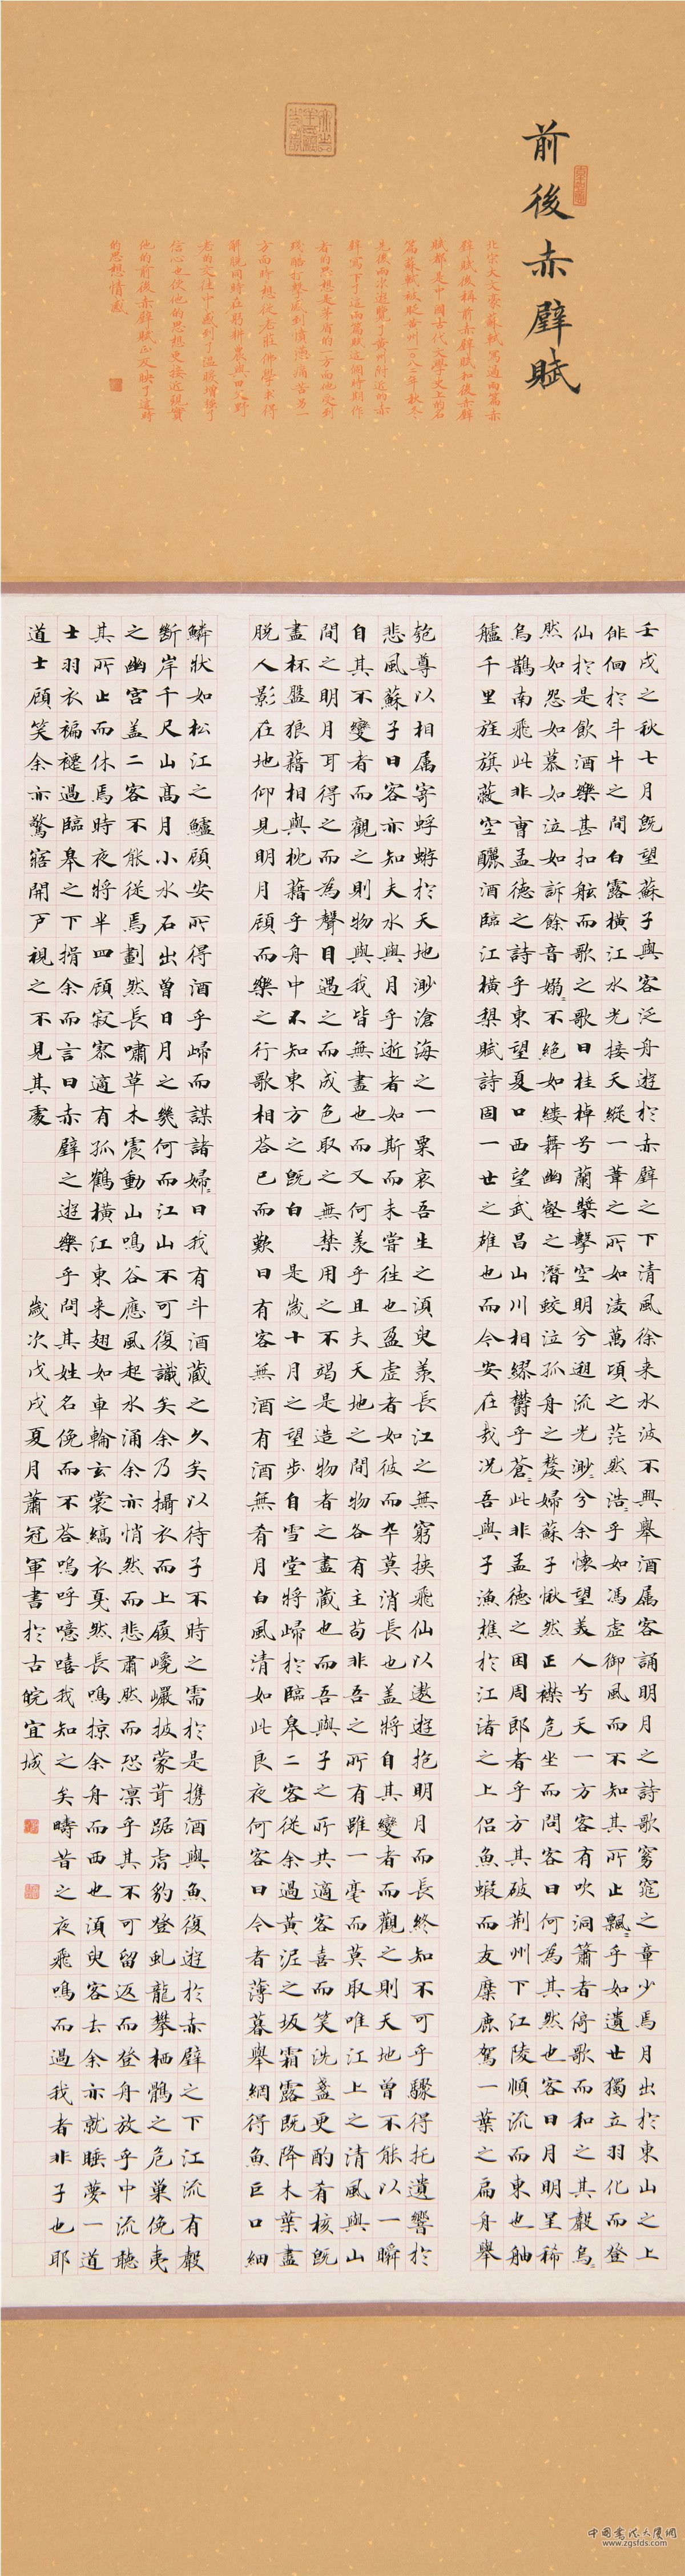 前後赤壁賦
北宋大文豪蘇軾寫過兩篇赤
壁賦後稱前赤壁賦和後赤壁
賦都是中國古代文學史上的名
篇蘇軾被貶黃州一〇八二年秋冬
先後兩次遊覽了黃州附近的赤
壁寫下了這兩篇賦這個時期作
者的思想是矛盾的一方面他受到
殘酷打擊感到憤懣痛苦另一
方面時想從老莊佛學求得
解脫同時在躬耕農與田父野
老的交往中感到了溫暖增強了
信心也使他的思想更接近現實
他的前後赤壁賦正反映了這時
的思想情感
壬戌之秋七月既望蘇子與客泛舟遊於赤壁之下清風徐来水波不興舉酒属客誦明月之詩歌窈窕之章少焉月出於東山之上
徘徊於斗牛之間白露橫江水光接天縱一葦之所如凌萬頃之茫然浩々乎如馮虚御風而不知其所止飄々乎如遺世獨立羽化而登
仙於是飲酒樂甚扣舷而歌之歌曰桂棹兮蘭槳擊空明兮遡流光渺々兮余懷望美人兮天一方客有吹洞簫者倚歌而和之其聲烏々
然如怨如慕如泣如訴餘音嫋々不絶如縷舞幽壑之潛蛟泣孤舟之嫠婦蘇子愀然正襟危坐而問客曰何為其然也客曰月明星稀
烏鵲南飛此非曹孟德之詩乎東望夏口西望武昌山川相繆鬱乎蒼々此非孟德之困周郎者乎方其破荆州下江陵順流而東也舳
艫千里旌旗蔽空釃酒臨江橫槊賦詩固一世之雄也而今安在哉况吾與子漁樵於江渚之上侣魚蝦而友糜鹿駕一葉之扁舟舉
匏尊以相属寄蜉蝣於天地渺滄海之一粟哀吾生之須臾羨長江之無窮挾飛仙以遨遊抱明月而長終知不可乎驟得托遺響於
悲風蘇子曰客亦知夫水與月乎逝者如斯而未嘗往也盈虚者如彼而卒莫消長也盖將自其變者而觀之則天地曾不能以一瞬
自其不變者而觀之則物與我皆無盡也而又何羨乎且夫天地之間物各有主苟非吾之所有雖一毫而莫取唯江上之清風與山
間之明月耳得之而為聲目遇之而成色取之無禁用之不竭是造物者之盡藏也而吾與子之所共適客喜而笑洗盞更酌肴核既
盡杯盤狼藉相與枕藉乎舟中不知東方之既白 是歲十月之望步自雪堂將歸於臨皋二客從余過黃泥之坂霜露既降木葉盡
脱人影在地仰見明月顧而樂之行歌相答已而歎曰有客無酒有酒無肴月白風清如此良夜何客曰今者薄暮舉網得魚巨口細
鱗狀如松江之鱸顧安所得酒乎歸而謀諸婦々曰我有斗酒藏之久矣以待子不時之需於是携酒與魚復遊於赤壁之下江流有聲
斷岸千尺山高月小水石出曾日月之幾何而江山不可復識矣余乃攝衣而上履巉巖披蒙茸踞虎豹登虬龍攀栖鶻之危巢俛夷
之幽宮盖二客不能從焉劃然長嘯草木震動山鳴谷應風起水涌余亦悄然而悲肅然而恐凛乎其不可留返而登舟放乎中流聽
其所止而休焉時夜將半四顧寂寥適有孤鶴橫江東来翅如車輪玄裳縞衣戛然長鳴掠余舟而西也須臾客去余亦就睡夢一道
士羽衣褊襹過臨皋之下揖余而言曰赤壁之遊樂乎問其姓名俛而不答嗚呼噫嘻我知之矣疇昔之夜飛鳴而過我者非子也耶
道士顧笑余亦驚寤開户視之不見其處 歲次戊戌夏月蕭冠軍書於古皖宜城
中国书法大厦网
www.zgsfds.com